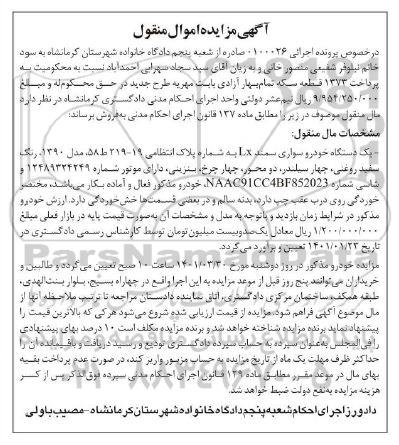 آگهی مزایده اموال منقول
درخصوص پرونده اجرائی ۰۱۰۰۰۲۶ صادره از شعبه پنجم دادگاه خانواده شهرستان کرمانشاه به سود
خانم نیلوفر شفیعی منصور خانی و به زیان آقای سید سجاد سهرابی احمدآباد نسبت به محکومیت به
پرداخت ۱۳۷۳ قطعه سکه تمام‌بهار آزادی بابت مهریه طرح جدید در حق محکوم‌له و مبلغ
۹/۹۵۴/۲۵۰/۰۰۰ ریال نیم‌عشر دولتی واحد اجرای احکام مدنی دادگستری کرمانشاه در نظر دارد
مال منقول موصوف در زیر را مطابق ماده ۱۳۷ قانون اجرای احکام مدنی به‌فروش برساند:
مشخصات مال منقول:
- یک دستگاه خودرو سواری سمند Lx به شماره پلاک انتظامی ۱۹-۲۱۹ ط۵۸، مدل ۱۳۹۰، رنگ
سفید روغنی، چهار سیلندر، دو محور، چهار چرخ، بنزینی، دارای موتور شماره ۱۲۴۸۹۳۲۴۲۴۹ و
شاسی شماره NAAC91CC4BF852023، خودرو مذکور فعال و آماده بکار می‌باشد، مختصر
خوردگی روی درب عقب چپ دارد، بدنه سالم و در بعضی قسمت‌ها خش‌خوردگی دارد. ارزش خودرو
مذکور در شرایط زمان بازدید و باتوجه به مدل و مشخصات آن به‌صورت قیمت پایه در بازار فعلی مبلغ
۱/۲۰۰/۰۰۰/۰۰۰ ریال معادل یک‌صدوبیست میلیون‌تومان توسط کارشناس رسمی دادگستری در
تاریخ ۱۴۰۱/۰۱/۲۳ تعیین و برآورد می‌گردد.
مزایده خودرو مذکور در روز دوشنبه مورخ ۱۴۰۱/۰۳/۳۰ ساعت ۱۰ صبح تعیین می‌گردد و طالبین و
خریداران می‌توانند پنج روز قبل از موعد مزایده به این اجرا واقع در چهارراه بسیج، بلوار بنت‌الهدی،
طبقه همکف، ساختمان مرکزی دادگستری، اتاق نماینده دادستان مراجعه تا ترتیب ملاحظه آنها از
مال موضوع آگهی فراهم شود. مزایده از قیمت ارزیابی شده شروع می‌شود هرکی که بالاترین قیمت را
پیشنهاد نماید برنده مزایده شناخته خواهد شد و برنده مزایده مکلف است ۱۰ درصد بهای پیشنهادی
را فی‌المجلس به‌عنوان سپرده به حساب سپرده دادگستری تودیع و رسید دریافت و باقیمانده آن را
حداکثر ظرف مهلت یک ماه از تاریخ مزایده به حساب مزبور واریز کند، در صورت عدم پرداخت بقیه
بهای مال در موعد مقرر مطابق ماده ۱۲۹ قانون اجرای احکام مدنی سپرده فوق‌الذکر پس از کسر
هزینه مزایده به‌نفع دولت ضبط خواهد شد.
دادورز اجرای احکام شعبه پنجم دادگاه خانواده شهرستان کرمانشاه-مصیب باولی